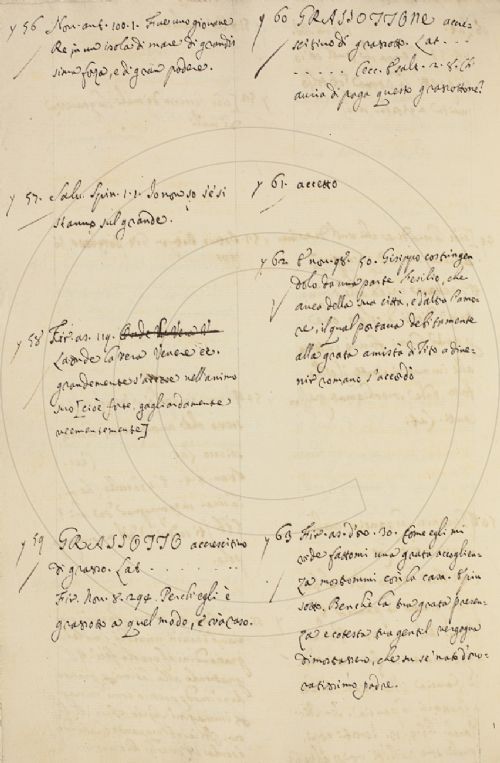 y 56 Nov. ant. 100. 1. Fue uno giovane
Re in una isola di mare di grandis
sima forza, e di gran podere.
y 57. Salv. Spin. 1. 1. Io non so s'e' si
stanno sul grande.
y 58 Fir. as. 119.
Laonde la vera Venere ec.
grandemente s'accese nell'animo
suo [cioè forte, gagliardamente
veementemente]
y 59 GRASSOTTO accrescitivo
di grasso. Lat. . . . . . . . .
Fir. Nov. 8. 294. Perch'egli è
grassotto a quel modo, è vivaso.
y 60 GRASSOTTONE accre-
scitivo di grassotto. Lat. . . .
. . . . . Cecc. Esalt. 2. 8. Ch'
avria di paga questo grassottone?
y 61. accetto
y 62. E nov. 98. 50. Gisippo costringen
dolo da una parte l'esilio, che
avea della sua città, e d'altra l'amo-
re, il qual portava debitamente
alla grata amistà di Tito a dive-
nir romano s'accordò
y 63 Fir. as. d'oro. 30. Come egli mi
vide fattomi una grata accoglien-
za mostrommi così la casa. E più
sotto. Benchè la tua grata presen-
za e cotesta tua gentil vergogna
dimostrasseno, che tu se' nato d'ono-
ratissimo padre.